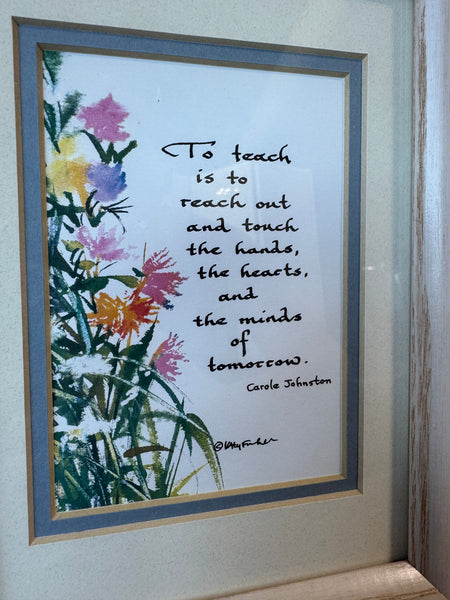 To teach
is to
reach out
and touch
the hands,
the hearts,
and
the minds
of
tomorrow.
Carole Johnston
©